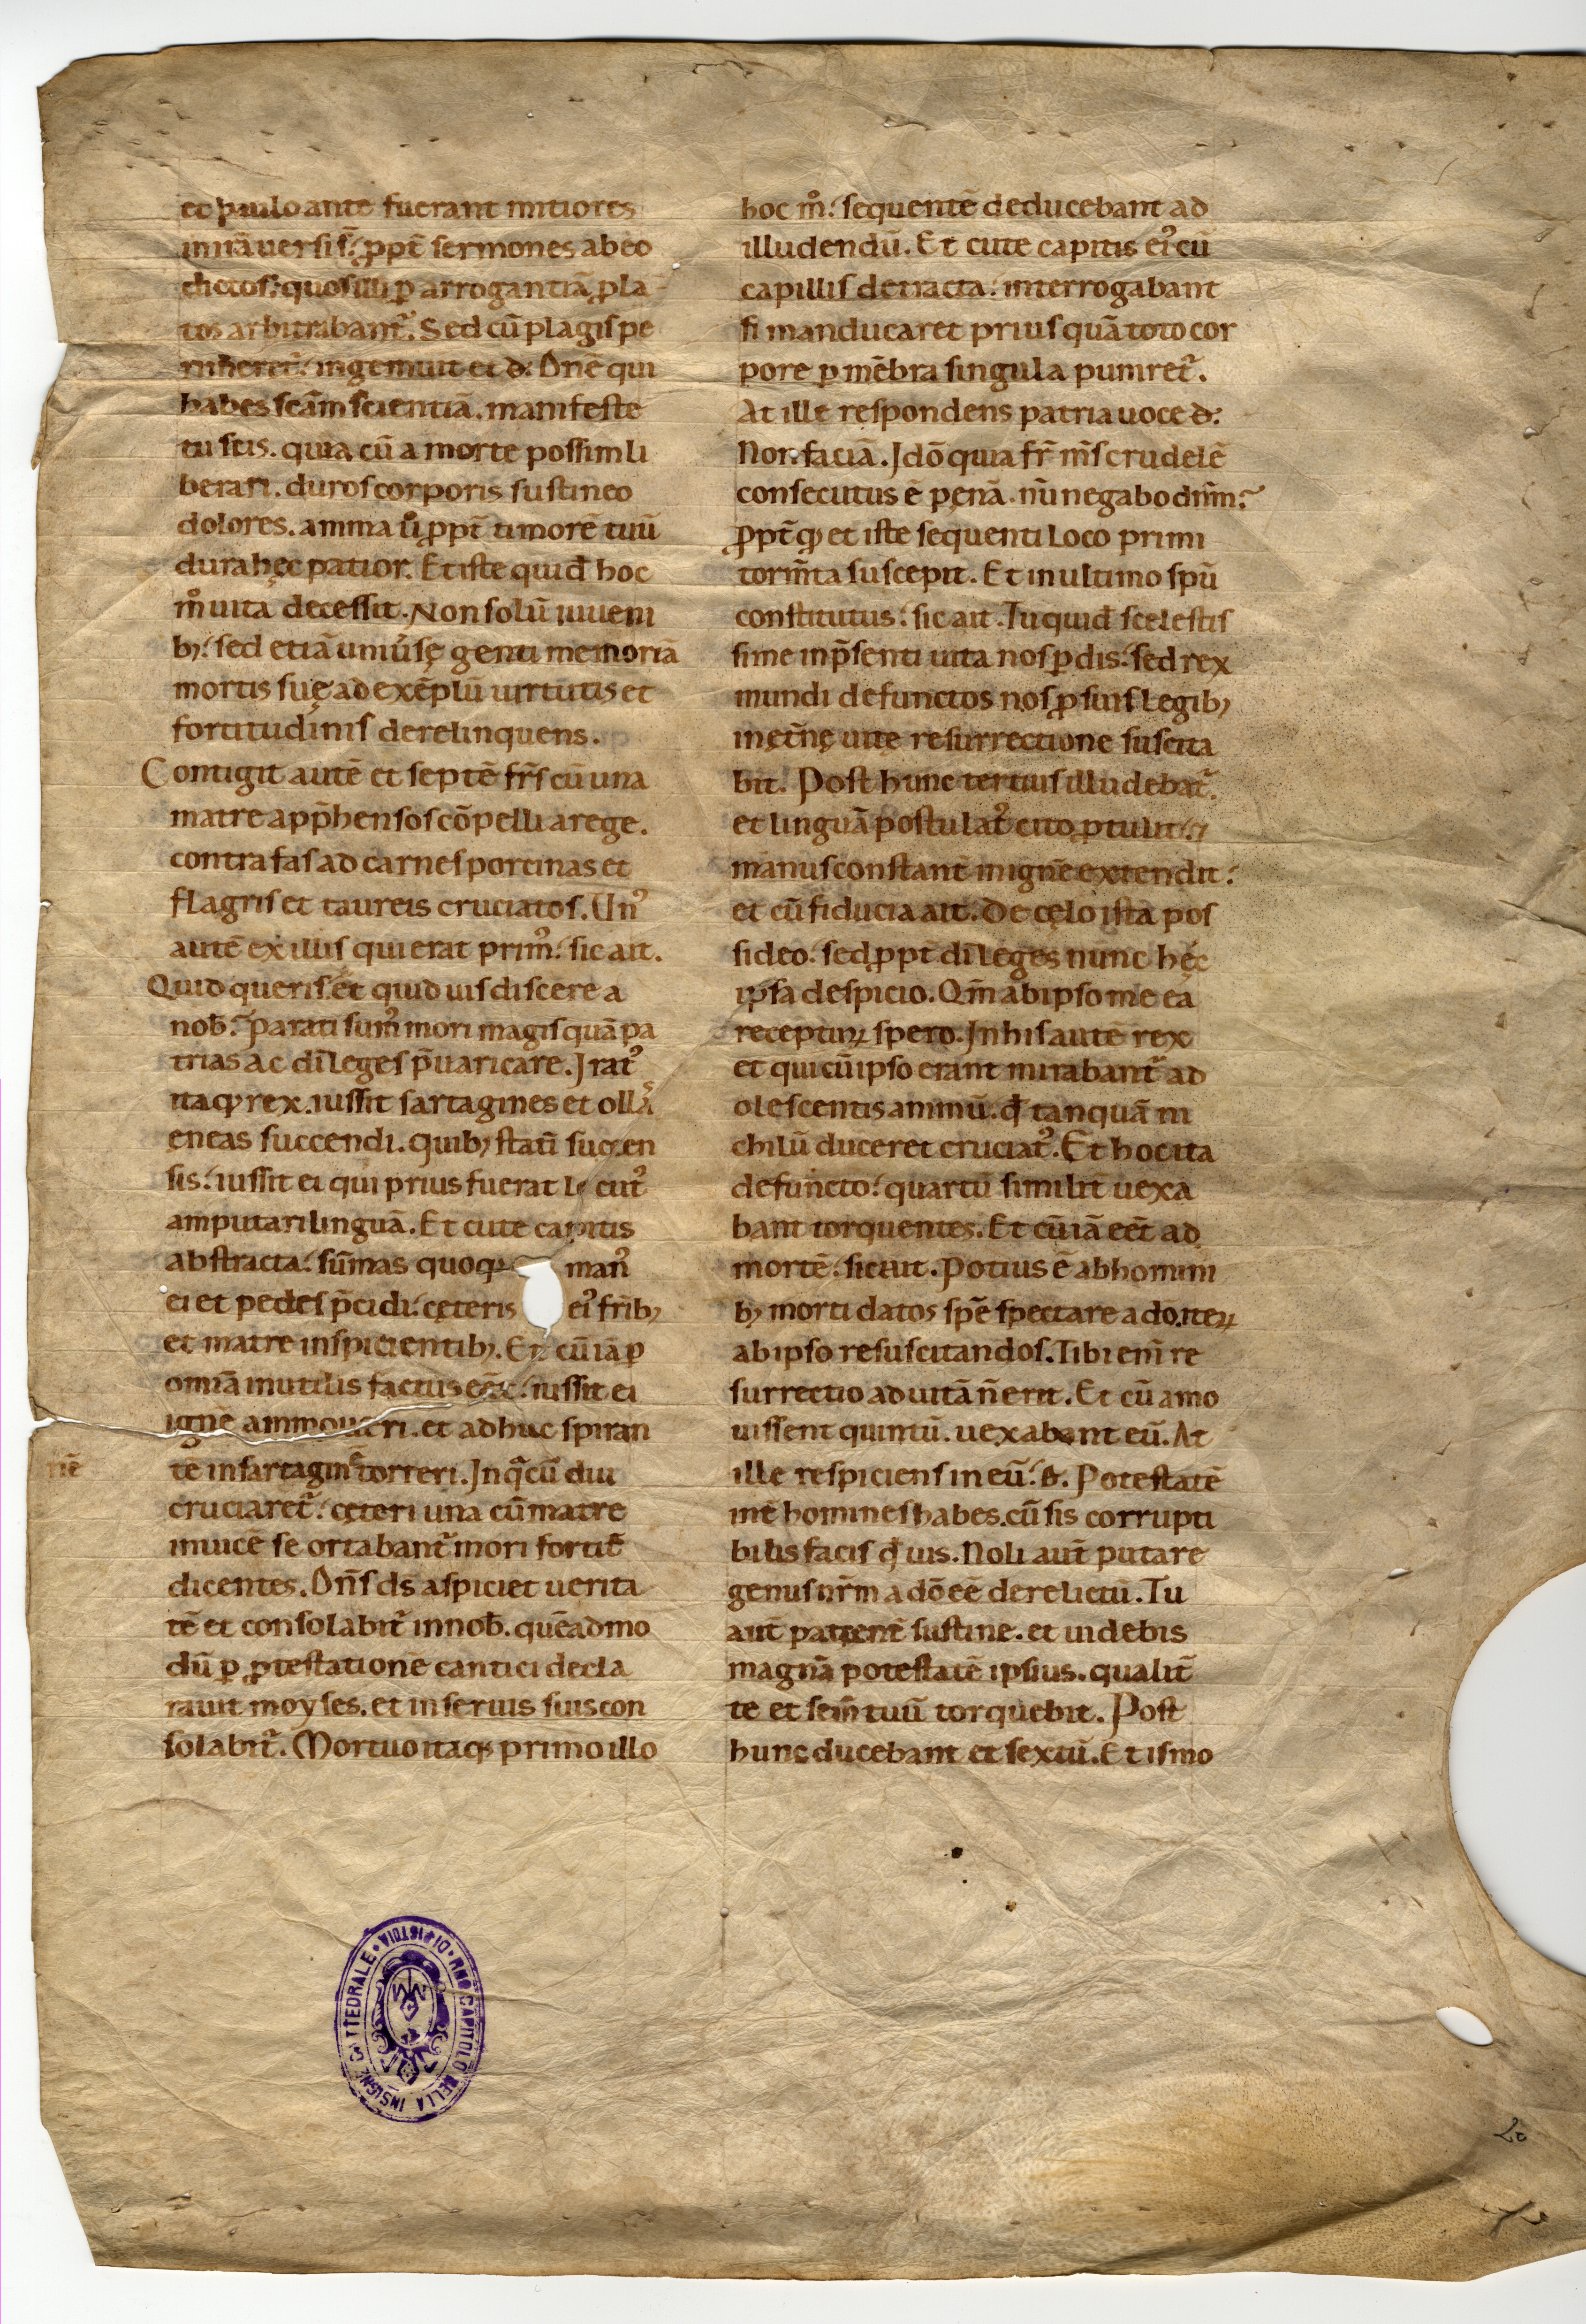 et paulo ante fuerant mitiores
in irā versi sī. ꝓpt̄ sermones ab eo
dictos. quos illi ꝑ arrogantiā ꝓla
tos arbitrabant᷑. Sed cū plagis pe
rimeret᷑. ingemuit et đ. Dn̄e qui
habes scām scientiā. manifeste
tu scis. quia cū a morte possim li
berari. duros corporis sustineo
dolores. anima ū ꝓpt̄ timorē tuū
dura hęc patior. Et iste quidē hoc
m̊ uita decessit. Non solū iuueni
bꝫ. sed etiā uniūsę genti memoriā
mortis suę ad exēplū uirtutis et
fortitudinis derelinquens.
Contigit autē et septē fr̄s cū una
matre app̄hensos cōpelli a rege.
contra fas ad carnes porcinas et
flagris et taureis cruciatos. Unꝰ
autē ex illis qui erat primꝰ. sic ait.
Quid queris. et quid uis discere a
nob̄. Parati sumꝰ mori magis quā pa
trias ac dī leges p̄uaricare. Iratꝰ
itaqꝫ rex. iussit sartagines et ollas
ęneas succendi. Quibꝫ statī succen
sis. iussit ei qui prius fuerat locutꝰ
amputari linguā. Et cute capitis
abstracta. sūmas quoqꝫ manꝰ
ei et pedes p̄cidi. cęteris eiꝰ fr̄ibꝫ
et matre inspicientibꝫ. Et cū iā ꝑ
omīa inutilis factus eēt. iussit ei
ignē ammoueri. et adhuc spiran
tē in sartagine torreri. In q̄ cū diu
cruciaret᷑. cęteri una cū matre
inuicē se ortabant᷑ mori fortit̄
dicentes. Dn̄s ds̄ aspiciet uerita
tē et consolabit᷑ in nob̄. quēadmo
dū ꝑ ꝓtestationē cantici decla
rauit moyses. et in seruis suis con
solabit᷑. Mortuo itaqꝫ primo illo
nē
hoc m̊. sequentē deducebant ad
illudendū. Et cute capitis eiꝰ cū
capillis detracta. interrogabant
si manducaret prius quā toto cor
pore ꝑ mēbra singula puniret᷑.
At ille respondens patria uoce đ.
Non faciā. Idō quia fr̄ m̄s crudelē
consecutus ē pęnā. nū negabo dn̄m.
ꝓpt̄ qđ et iste sequenti loco primi
torm̄ta suscepit. Et in ultimo spū
constitutus. sic ait. Tu quidē scelestis
sime in p̄senti uita nos ꝑdis. sed rex
mundi defunctos nos ꝓ suis legibꝫ
in ęt̄nę uitę resurrectione suscita
bit. Post hunc tertius illudebat᷑.
et linguā postulatꝰ cito ꝓtulit. ⁊
manus constant̄ in ignē extendit.
et cū fiducia ait. De cęlo ista pos
sideo. sed ꝓpt̄ dī leges nunc hęc
ipsa despicio. Qm̄ ab ipso me ea
recepturꝝ spero. In his autē rex
et qui cū ipso erant mirabant᷑ ad
olescentis animū. qđ tanquā ni
chilū duceret cruciatꝰ. Et hoc ita
defuncto. quartū similit̄ uexa
bant torquentes. Et cū iā eēt ad
mortē. sic ait. Potius ē ab homini
bꝫ morti datos spē spectare a dō iteꝝ
ab ipso resuscitandos. Tibi enī re
surrectio ad uitā n̄ erit. Et cū amo
uissent quintū. uexabant eū. At
ille respiciens in eū. đ. Potestatē
int̄ homines habes. cū sis corrupti
bilis facis qđ uis. Noli aut̄ putare
genus nr̄m a dō eē derelictū. Tu
aut̄ patient̄ sustine. et uidebis
magnā potestatē ipsius. qualit̄
te et sem̄ tuū torquebit. Post
hunc ducebant et sextū. Et is mo
RMO CAPITOLO DELLA INSIGNE CATTEDRALE • DI PISTOIA •